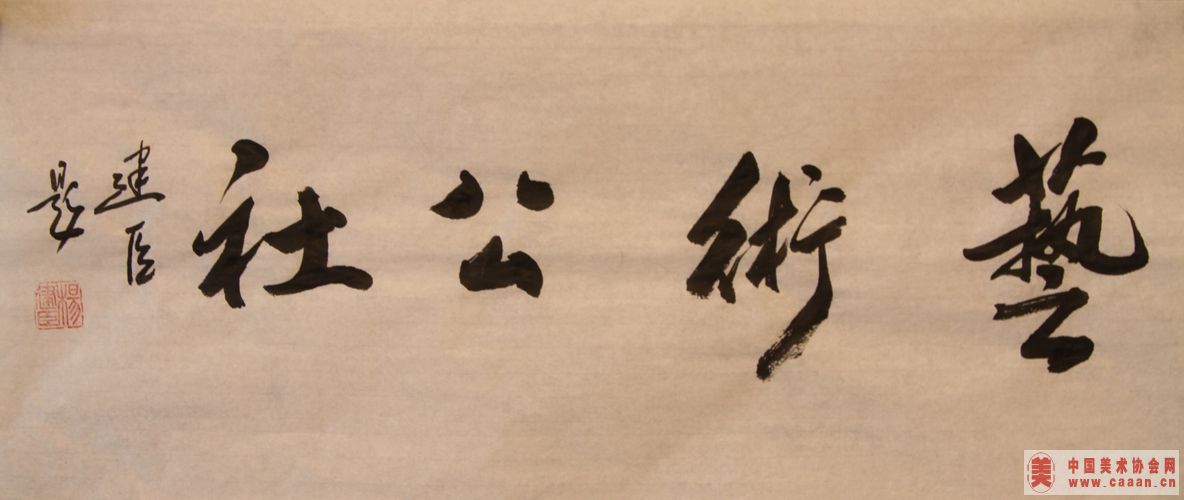 藝術公社
建臣
題
楊建臣
中国美术协会网
www.caaan.cn
美